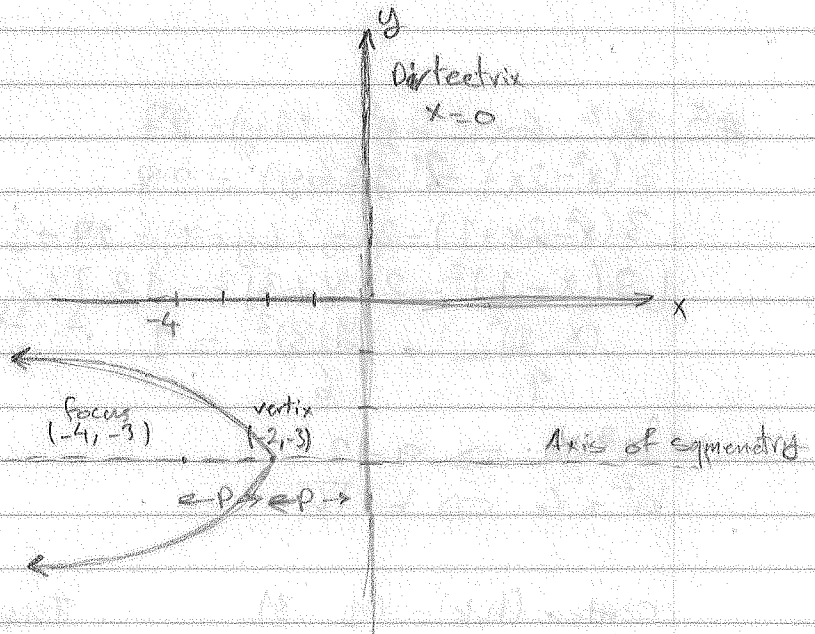 y
Dirtectrix
x=0
-4
x
focus
(-4, -3)
vertix
(-2,-3)
Axis of symendry
← P → ← P →